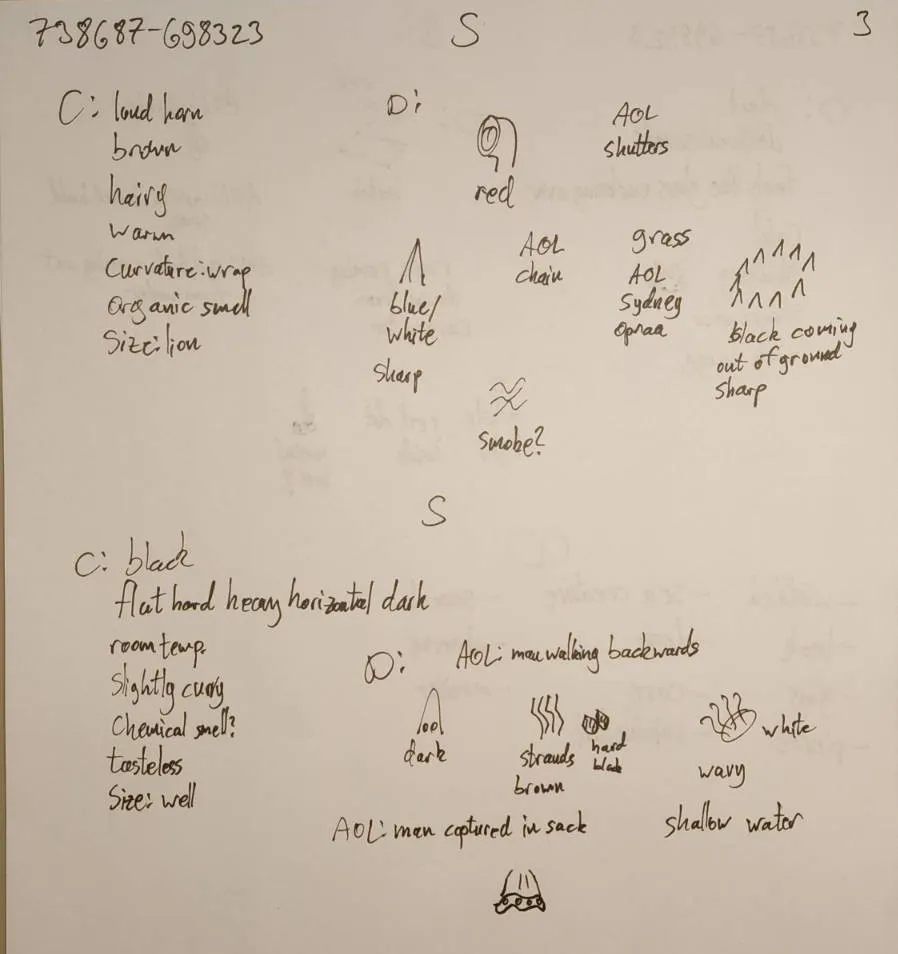 738687-698323
S
3
C: loud horn
brown
hairy
warm
Curvature: wrap
Organic smell
Size: lion
D:
red
AOL
shutters
blue/
white
sharp
AOL
chain
grass
AOL
Sydney
opraa
black coming
out of ground
sharp
smobe?
S
C: black
flat hard heavy horizontal dark
room temp.
Slightly curvy
Chemical smell?
tasteless
Size: well
D:
AOL: man walking backwards
dark
strands
brown
hard
black
white
wavy
AOL: man captured in sack
shallow water